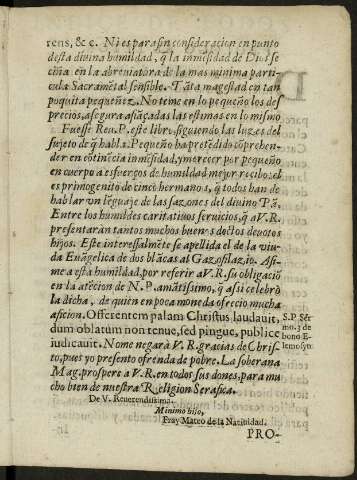 rens, & c. Ni es para sin consideracion en punto
desta diuina humildad, q̃ la inmẽsidad de Dios se
ciña en la abreuiatura de la mas minima parti-
cula Sacramẽtal sensible. Tãta magestad en tan
poquita pequeñez. No teme en lo pequeño los des
precios, asegura afiãçadas las estimas en lo mismo
Fuesse Reu. P. este libro, siguiendo las luzes del
sujeto de q̃ habla. Pequeño ha pretẽdido comprehen-
der en cõtinẽcia inmẽsidad, y merecer por pequeño
en cuerpo a esfuerços de humildad mejor recibo: el
es primogenito de cinco hermanos, q̃ todos han de
hablar vn lẽguaje de las sazones del diuino Pã.
Entre los humildes caritatiuos seruicios, q̃ a V.R.
presentaràn tantos muchos buenos doctos deuotos
hijos. Este interessalmẽte se apellida el de la viu-
da Euãgelica de dos blãcas al Gazofilazio. Asi-
me a esta humildad, por referir a V.R. su obligaciõ
en la atẽcion de N. P. amãtissimo, q̃ assi celebrò
la dicha, de quien en poca moneda ofrecio mucha
aficion. Offerentem palam Christus laudauit,
dum oblatum non tenue, sed pingue, publice
iudicauit. No me negarà V.R. gracias de Chris-
to, pues yo presento ofrenda de pobre. La soberana
Mag. prospere a V.R. en todos sus dones, para mu
cho bien de nuestra Religion Serafica.
S. P. Ser
mo. 3. de
bono E-
lemosyn.
De V. Reuerendissima.
Minimo hijo,
Fray Mateo de la Natiuidad.
PRO-